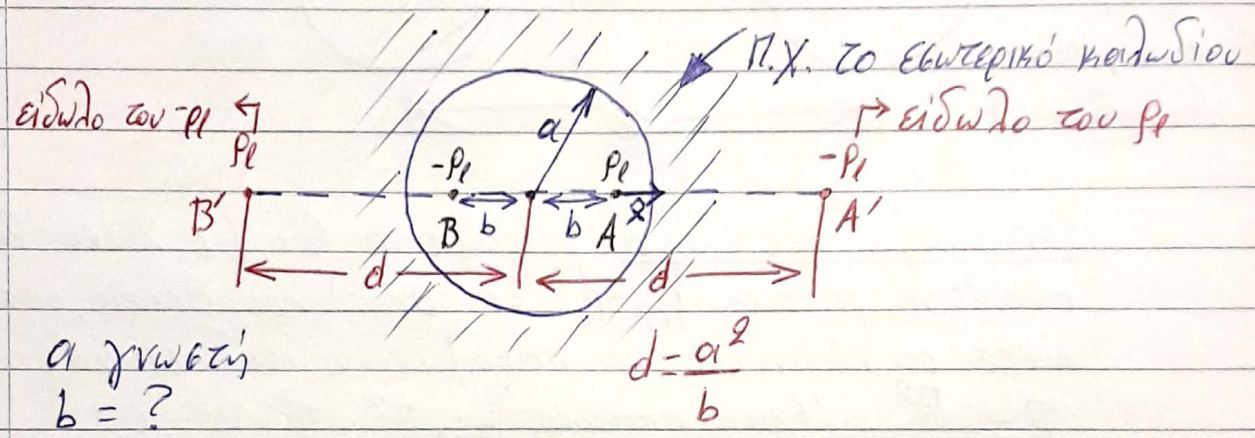 Π.Χ. το εσωτερικό καλωδίου
είδωλο του -ρℓ
είδωλο του ρℓ
ρℓ
-ρℓ
ρℓ
-ρℓ
a
B'
B
b
b
A
x̂
A'
d
d
a γνωστή
b = ?
d = a²/b